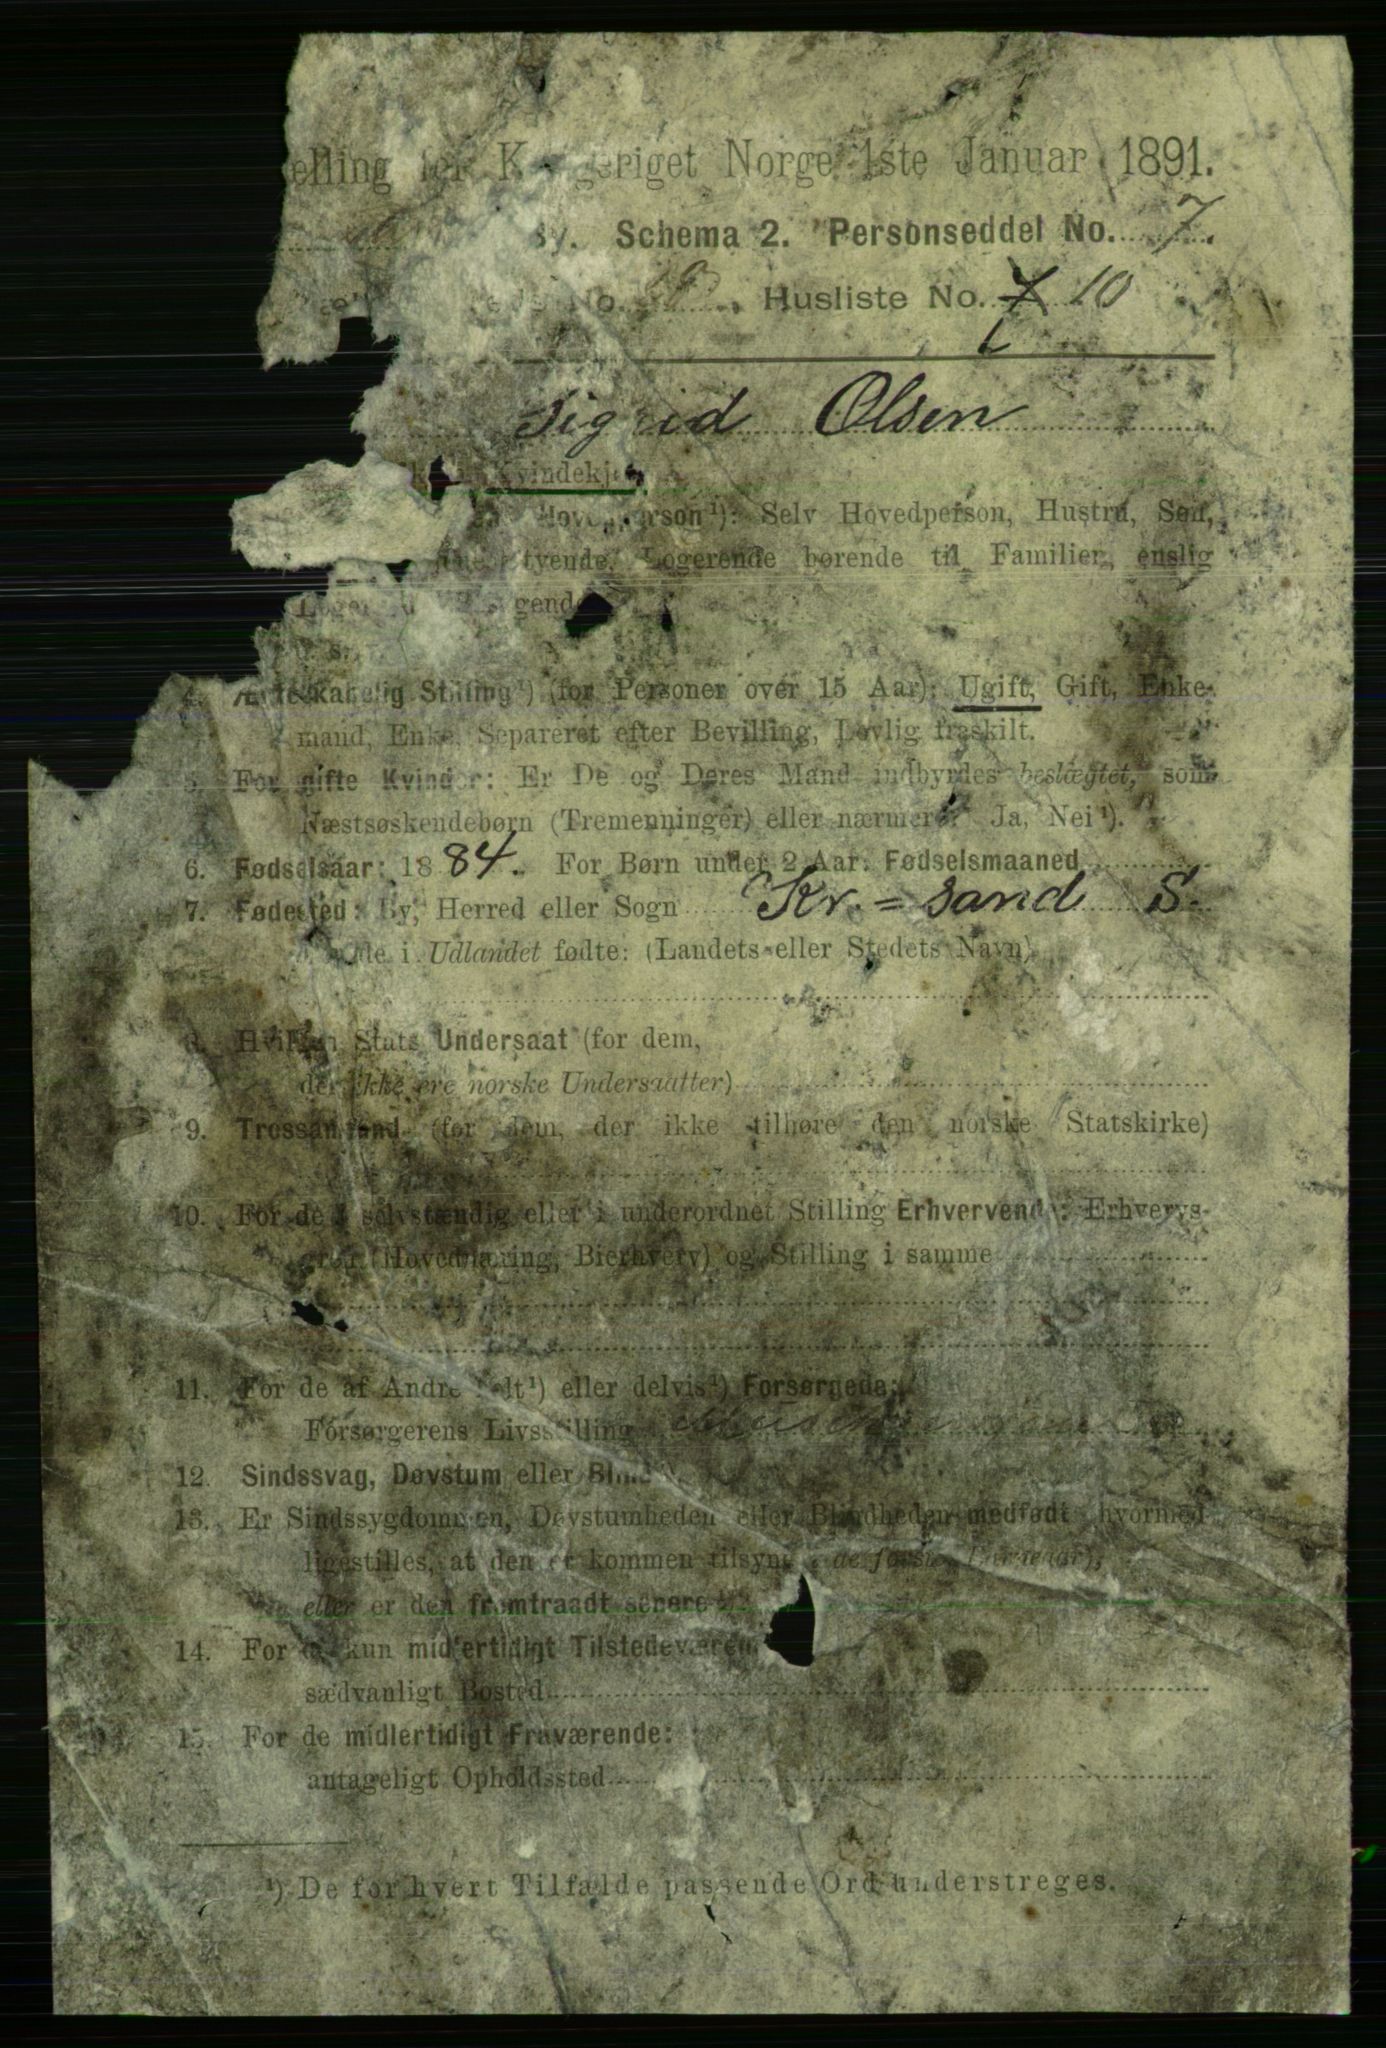 elling for K geriget Norge 1ste Januar 1891.
By. Schema 2. Personseddel No. 7.
No. Husliste No. 10
Sigrid Olsen
Kvindekjøn
Hovedperson ¹): Selv Hovedperson, Hustru, Søn,
tyende, Logerende hørende til Familien, enslig
Logerende gende
4. Ægteskabelig Stilling ¹) (for Personer over 15 Aar): Ugift, Gift, Enke-
mand, Enke, Separeret efter Bevilling, Lovlig fraskilt.
5. For gifte Kvinder: Er De og Deres Mand indbyrdes beslægtet, som
Næstsøskendebørn (Tremenninger) eller nærmere? Ja, Nei ¹).
6. Fødselsaar: 1884. For Børn under 2 Aar: Fødselsmaaned
7. Fødested: By, Herred eller Sogn Kr.=sand S.
de i Udlandet fødte: (Landets eller Stedets Navn)
8. Hvilken Stats Undersaat (for dem,
der ikke ere norske Undersaatter)
9. Trossamfund (for dem, der ikke tilhøre den norske Statskirke)
10. For de i selvstændig eller i underordnet Stilling Erhvervende: Erhvervs-
gren (Hovednæring, Bierhverv) og Stilling i samme
11. For de af Andre helt ¹) eller delvis ¹) Forsørgede:
Forsørgerens Livsstilling
12. Sindssvag, Døvstum eller Blind
13. Er Sindssygdommen, Døvstumheden eller Blindheden medfødt hvormed
ligestilles, at den er kommen tilsyne de første Leveaar),
eller er den fremtraadt senere
14. For de kun midlertidigt Tilstedeværende
sædvanligt Bosted
15. For de midlertidigt Fraværende:
antageligt Opholdssted
¹) De for hvert Tilfælde passende Ord understreges.